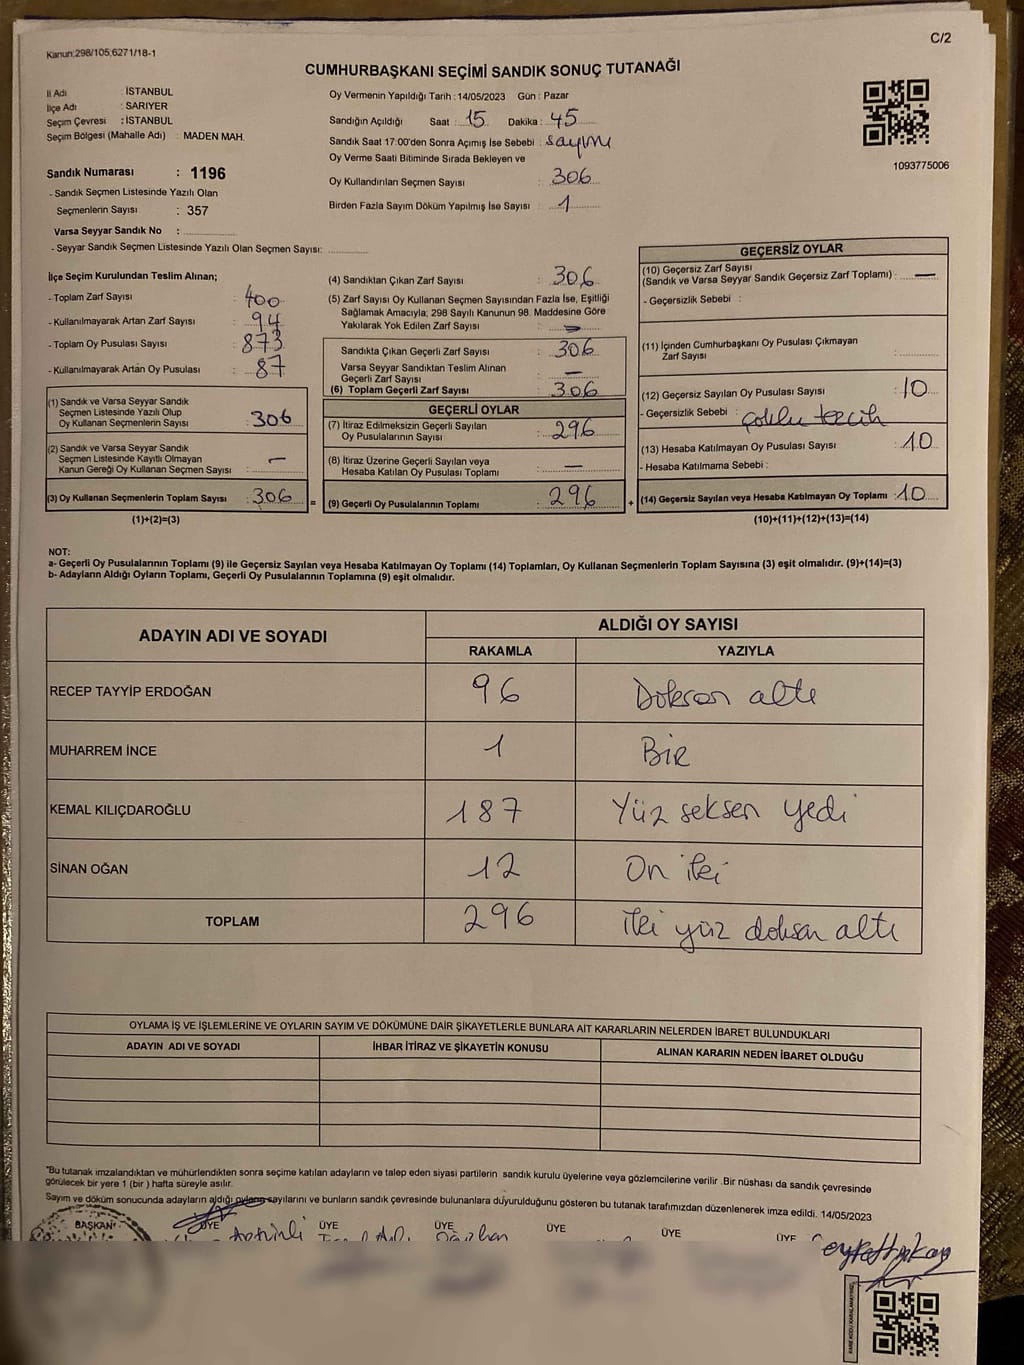 Kanun:298/105;6271/18-1
C/2
CUMHURBAŞKANI SEÇİMİ SANDIK SONUÇ TUTANAĞI
İl Adı : İSTANBUL
İlçe Adı : SARIYER
Seçim Çevresi : İSTANBUL
Seçim Bölgesi (Mahalle Adı) : MADEN MAH.
Sandık Numarası : 1196
- Sandık Seçmen Listesinde Yazılı Olan
Seçmenlerin Sayısı : 357
Varsa Seyyar Sandık No :
- Seyyar Sandık Seçmen Listesinde Yazılı Olan Seçmen Sayısı:
Oy Vermenin Yapıldığı Tarih : 14/05/2023 Gün : Pazar
Sandığın Açıldığı Saat : 15 Dakika : 45
Sandık Saat 17:00'den Sonra Açımış İse Sebebi : sayım
Oy Verme Saati Bitiminde Sırada Bekleyen ve
Oy Kullandırılan Seçmen Sayısı : 306
Birden Fazla Sayım Döküm Yapılmış İse Sayısı : 1
1093775006
İlçe Seçim Kurulundan Teslim Alınan;
- Toplam Zarf Sayısı : 400
- Kullanılmayarak Artan Zarf Sayısı : 94
- Toplam Oy Pusulası Sayısı : 873
- Kullanılmayarak Artan Oy Pusulası : 87
(1) Sandık ve Varsa Seyyar Sandık
Seçmen Listesinde Yazılı Olup
Oy Kullanan Seçmenlerin Sayısı : 306
(2) Sandık ve Varsa Seyyar Sandık
Seçmen Listesinde Kayıtlı Olmayan
Kanun Gereği Oy Kullanan Seçmen Sayısı : —
(3) Oy Kullanan Seçmenlerin Toplam Sayısı : 306 =
(1)+(2)=(3)
(4) Sandıktan Çıkan Zarf Sayısı : 306
(5) Zarf Sayısı Oy Kullanan Seçmen Sayısından Fazla İse, Eşitliği
Sağlamak Amacıyla; 298 Sayılı Kanunun 98. Maddesine Göre
Yakılarak Yok Edilen Zarf Sayısı :
Sandıkta Çıkan Geçerli Zarf Sayısı : 306
Varsa Seyyar Sandıktan Teslim Alınan
Geçerli Zarf Sayısı : —
(6) Toplam Geçerli Zarf Sayısı : 306
GEÇERLİ OYLAR
(7) İtiraz Edilmeksizin Geçerli Sayılan
Oy Pusulalarının Sayısı : 296
(8) İtiraz Üzerine Geçerli Sayılan veya
Hesaba Katılan Oy Pusulası Toplamı : —
(9) Geçerli Oy Pusulalarının Toplamı : 296 +
GEÇERSİZ OYLAR
(10) Geçersiz Zarf Sayısı
(Sandık ve Varsa Seyyar Sandık Geçersiz Zarf Toplamı) : —
- Geçersizlik Sebebi :
(11) İçinden Cumhurbaşkanı Oy Pusulası Çıkmayan
Zarf Sayısı :
(12) Geçersiz Sayılan Oy Pusulası Sayısı : 10
- Geçersizlik Sebebi : çoklu tercih
(13) Hesaba Katılmayan Oy Pusulası Sayısı : 10
- Hesaba Katılmama Sebebi :
(14) Geçersiz Sayılan veya Hesaba Katılmayan Oy Toplamı : 10
(10)+(11)+(12)+(13)=(14)
NOT:
a- Geçerli Oy Pusulalarının Toplamı (9) ile Geçersiz Sayılan veya Hesaba Katılmayan Oy Toplamı (14) Toplamları, Oy Kullanan Seçmenlerin Toplam Sayısına (3) eşit olmalıdır. (9)+(14)=(3)
b- Adayların Aldığı Oyların Toplamı, Geçerli Oy Pusulalarının Toplamına (9) eşit olmalıdır.
ADAYIN ADI VE SOYADI
ALDIĞI OY SAYISI
RAKAMLA YAZIYLA
RECEP TAYYİP ERDOĞAN 96 Doksan altı
MUHARREM İNCE 1 Bir
KEMAL KILIÇDAROĞLU 187 Yüz seksen yedi
SİNAN OĞAN 12 On iki
TOPLAM 296 İki yüz doksan altı
OYLAMA İŞ VE İŞLEMLERİNE VE OYLARIN SAYIM VE DÖKÜMÜNE DAİR ŞİKAYETLERLE BUNLARA AİT KARARLARIN NELERDEN İBARET BULUNDUKLARI
ADAYIN ADI VE SOYADI İHBAR İTİRAZ VE ŞİKAYETİN KONUSU ALINAN KARARIN NEDEN İBARET OLDUĞU
*Bu tutanak imzalandıktan ve mühürlendikten sonra seçime katılan adayların ve talep eden siyasi partilerin sandık kurulu üyelerine veya gözlemcilerine verilir .Bir nüshası da sandık çevresinde
görülecek bir yere 1 (bir ) hafta süreyle asılır.
Sayım ve döküm sonucunda adayların aldığı oyların sayılarını ve bunların sandık çevresinde bulunanlara duyurulduğunu gösteren bu tutanak tarafımızdan düzenlenerek imza edildi. 14/05/2023
BAŞKAN ÜYE ÜYE ÜYE ÜYE ÜYE ÜYE